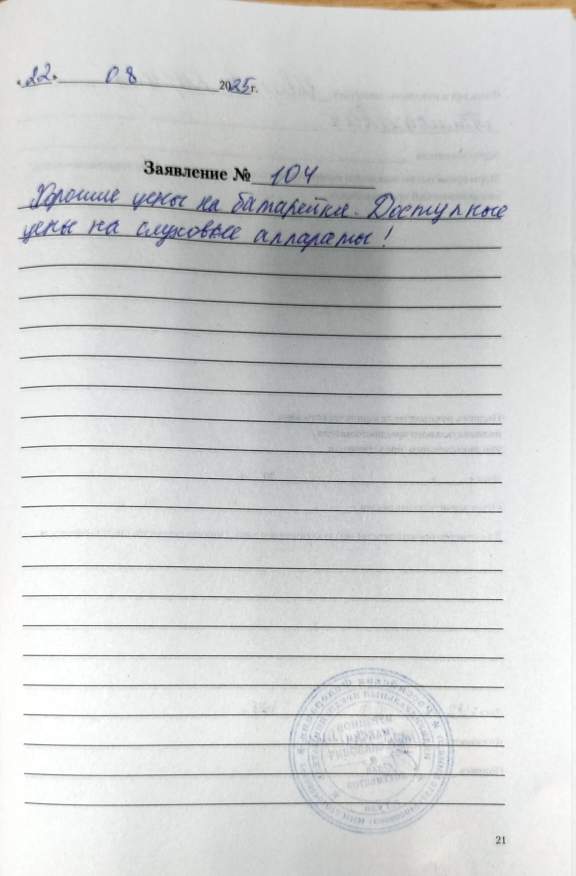 «22» 08 2025г.
Заявление № 104
Хорошие цены на батарейки. Доступные
цены на слуховые аппараты!
21